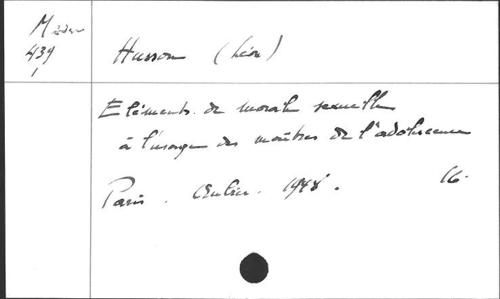 Méder
439
1
Husson (Léon)
Eléments de morale sexuelle
à l'usage des maîtres de l'adolescence
Paris. Aubier. 1948. 16.